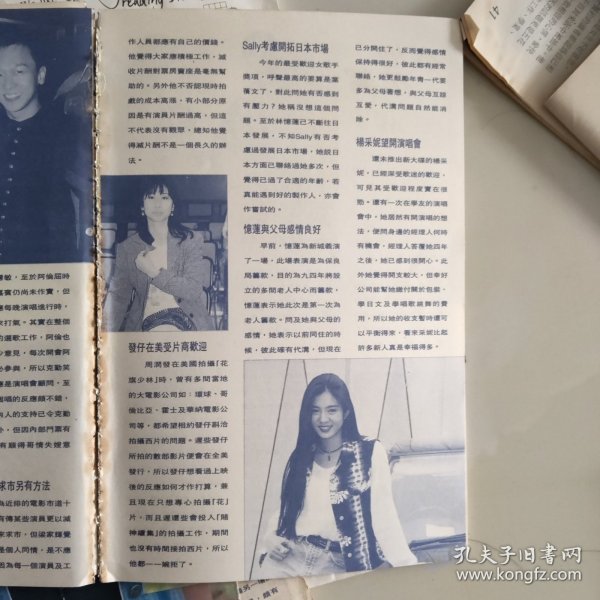 reading s
敏，至於阿倫屆時
嘉賓仍尚未作實，但
求市另有方法
為近排的電影市道十
作人員都應有自己的價錢。
他覺得大家應積極工作，減
收片酬對票房實在是毫無幫
助的。另外他不否認現時拍
戲的成本高漲，有小部分原
因是有演員片酬過高，但這
不代表沒有觀眾，總知他覺
得減片酬不是一個長久的辦
法。
發仔在美受片商歡迎
周潤發在美國拍攝「花
旗少林」時，曾有多間當地
的大電影公司如：環球、哥
倫比亞、霍士及華納電影公
司等，都希望相約發仔斟洽
拍攝西片的問題。還些發仔
所拍的數部影片便會在全美
發行，所以發仔想看過上映
後的反應如何才作打算，兼
且現在只想專心拍攝「花」
片，而且遲還些會投入「賭
神續集」的拍攝工作，期間
也沒有時間接拍西片，所以
他都一一婉拒了。
Sally考慮開拓日本市場
今年的最受歡迎女歌手
獎項，呼聲最高的要算是葉
蒨文了，對此問她有否感到
有壓力？她稱沒想這個問
題。至於林憶蓮已不斷往日
本發展，不知Sally有否考
慮過發展日本市場，她說日
本方面已聯絡過她多次，但
覺得已過了合適的年齡，若
真能遇到好的製作人，亦會
作嘗試的。
憶蓮與父母感情良好
早前，憶蓮為新城義演
了一場，此場表演是為保良
局籌款，目的為九四年將設
立的多間老人中心而籌款，
憶蓮表示她此次是第一次為
老人籌款。問及她與父母的
感情，她表示以前同住的時
候，彼此確有代溝，但現在
已分開住了，反而覺得感情
保持得很好，彼此都有經常
聯絡，她更鼓勵年青一代要
多為父母著想，與父母互諒
互愛，代溝問題自然能消
除。
楊采妮望開演唱會
還未推出新大碟的楊采
妮，已經深受歌迷的歡迎，
可見其受歡迎程度實在很
勁。還有一次在學友的演唱
會中，她居然有開演唱的想
法，便問身邊的經理人何時
有機會，經理人答覆她四年
之後，她已感到很開心。此
外她覺得開支較大，但幸好
公司能幫她繳付關於包裝，
學日文及學唱歌跳舞的費
用，所以她的收支暫時還可
以平衡得來，看來采妮比起
許多新人真是幸福得多。
41
孔夫子旧书网
www.kongfz.com